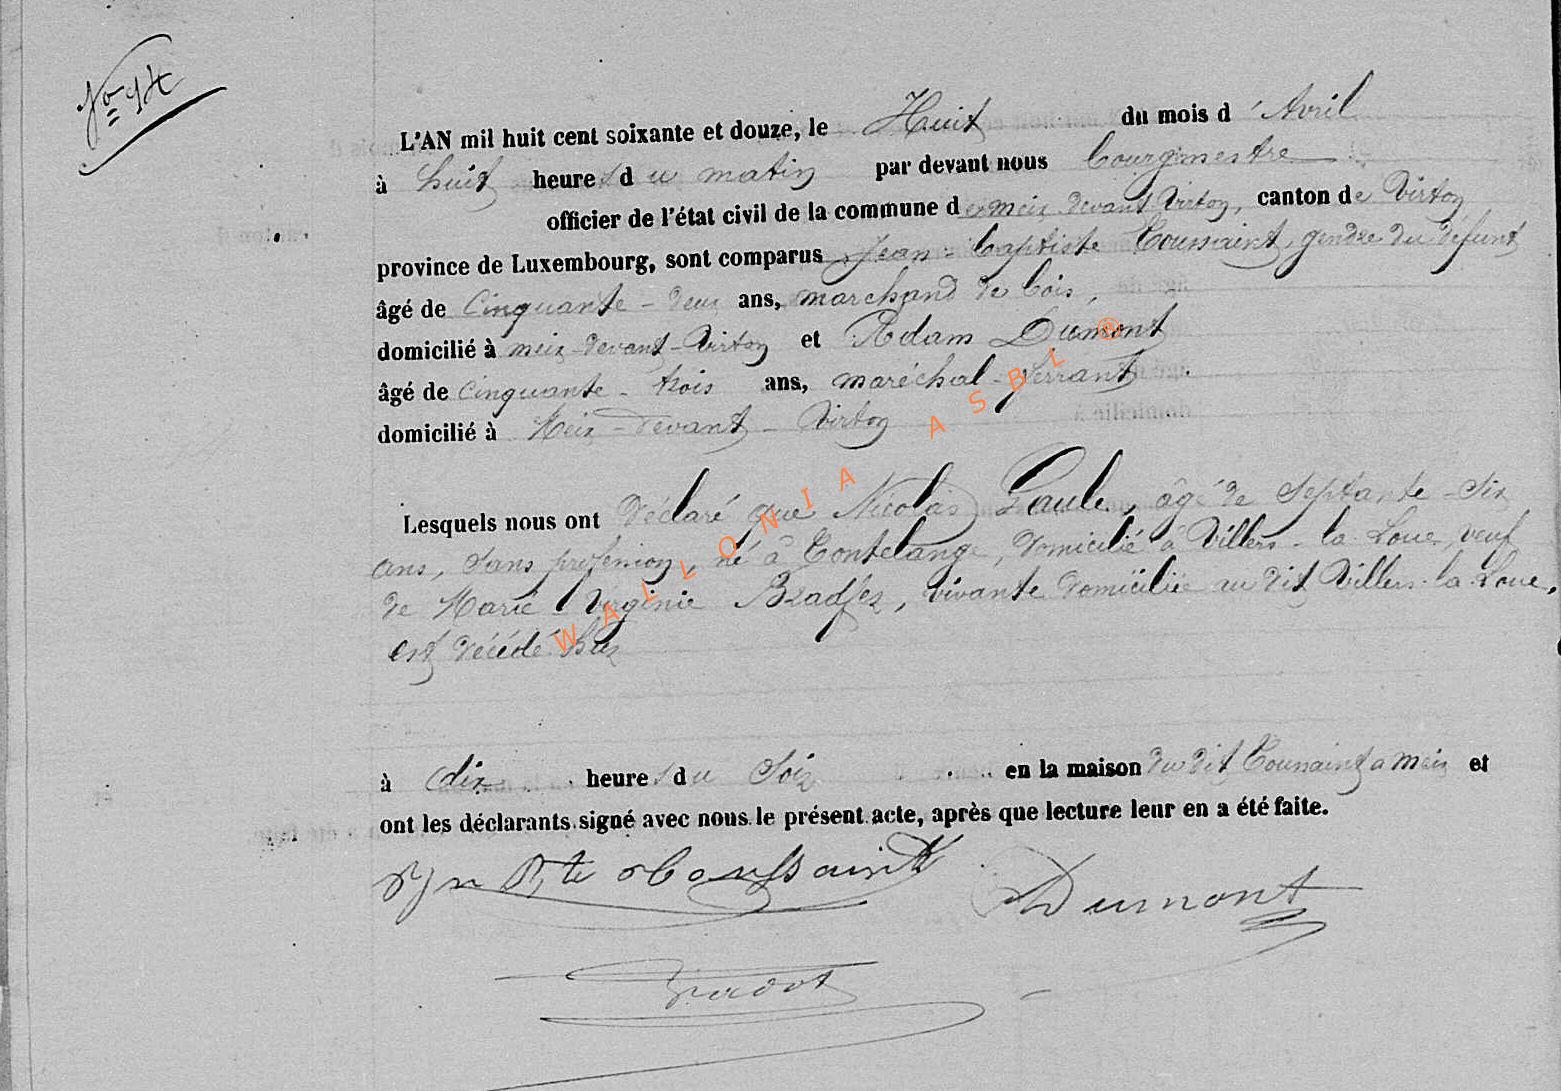 No 14
L'AN mil huit cent soixante et douze, le Huit du mois d'Avril
à huit heures du matin par devant nous bourgmestre
officier de l'état civil de la commune de meix devant Virton, canton de Virton
province de Luxembourg, sont comparus Jean-baptiste Toussaint, gendre du défunt
âgé de Cinquante-deux ans, marchand de bois,
domicilié à meix-devant-Virton et Adam Dumont
âgé de cinquante-trois ans, maréchal-ferrant
domicilié à Meix-devant-Virton
Lesquels nous ont déclaré que Nicolas Gaule, âgé de Septante-Six
ans, Sans profession, né à Tontelange, domicilié à Villers-la-Loue, veuf
de Marie Virginie, vivante domiciliée au dit Villers-la-Loue,
est décédé hier
à dix heures du Soir en la maison du dit Toussaint a Meix et
ont les déclarants signé avec nous le présent acte, après que lecture leur en a été faite.
Jn Bte Toussaint
ADumont
WALLONIA ASBL ®